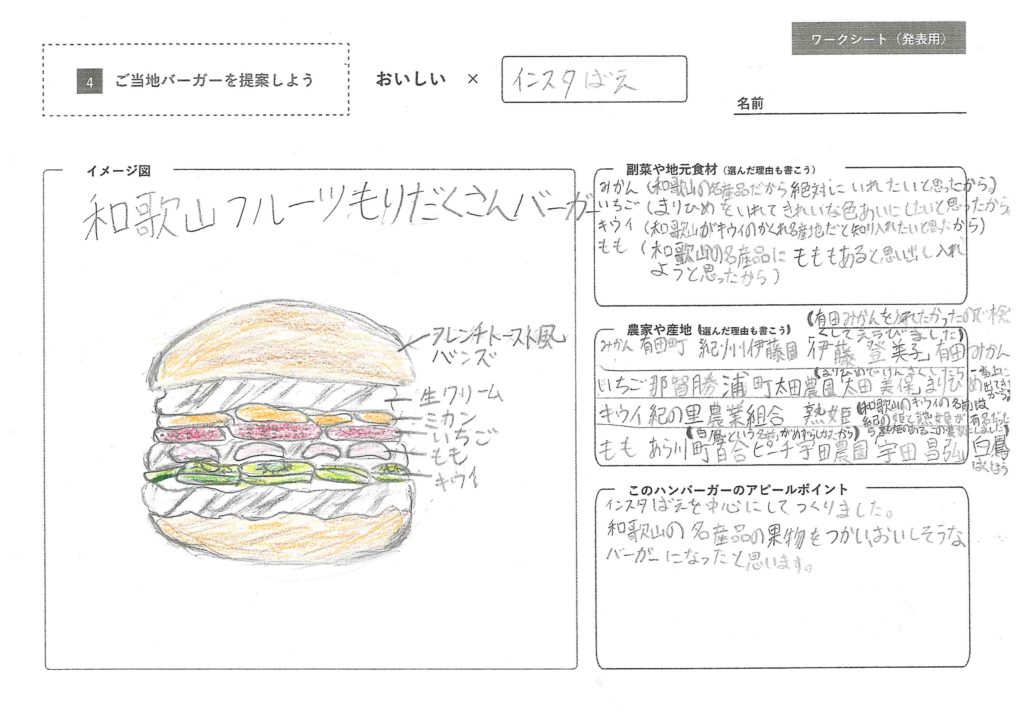 ワークシート（発表用）
4 ご当地バーガーを提案しよう
おいしい × インスタばえ
名前
イメージ図
和歌山フルーツもりだくさんバーガー
フレンチトースト風
バンズ
生クリーム
ミカン
いちご
もも
キウイ
副菜や地元食材（選んだ理由も書こう）
みかん（和歌山の名産品だから絶対にいれたいと思ったから）
いちご（まりひめをいれてきれいな色あいにしたいと思ったから
キウイ（和歌山がキウイのかくれ名産地だと知り入れたいと思ったから）
もも（和歌山の名産品にもももあると思い出し入れ
ようと思ったから）
農家や産地（選んだ理由も書こう）
（有田みかんを入れたかったので検
くしてえらびました）
みかん 有田町 紀州伊藤園 伊藤 登美子 有田みかん
（まりひめでけんさくしたら一番上に
出てきたから）
いちご 那智勝浦町 太田農園 太田 美保 まりひめ
キウイ 紀の里農業組合 熟姫
（和歌山のキウイの名前は
（白鳳という名前がめずらしかったから）
もも あら川町 百合ピーチ宇田農園 宇田 昌弘 白鳳
はくほう
このハンバーガーのアピールポイント
インスタばえを中心にしてつくりました。
和歌山の名産品の果物をつかい、おいしそうな
バーガーになったと思います。